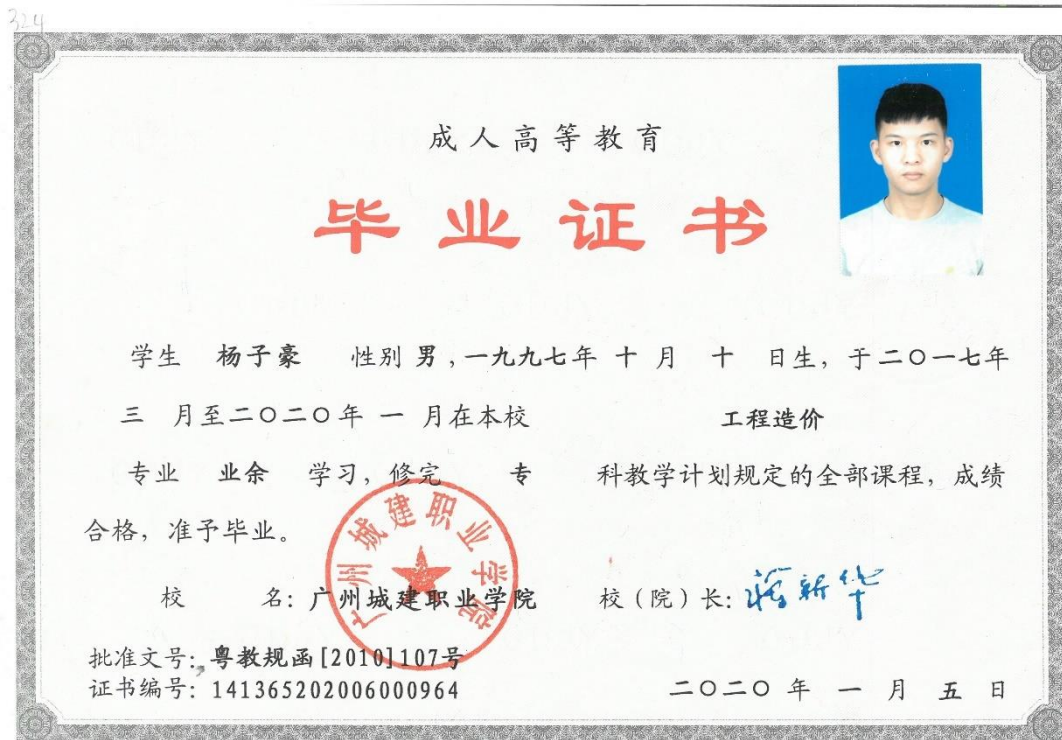 324
成人高等教育
毕业证书
学生 杨子豪 性别 男，一九九七年 十 月 十 日生，于二〇一七年
三 月至二〇二〇年 一 月在本校 工程造价
专业 业余 学习，修完 专 科教学计划规定的全部课程，成绩
合格，准予毕业。
广州城建职业学院
校 名：广州城建职业学院 校（院）长：蒋新华
批准文号：粤教规函[2010]107号
证书编号：141365202006000964
二〇二〇 年 一 月 五 日